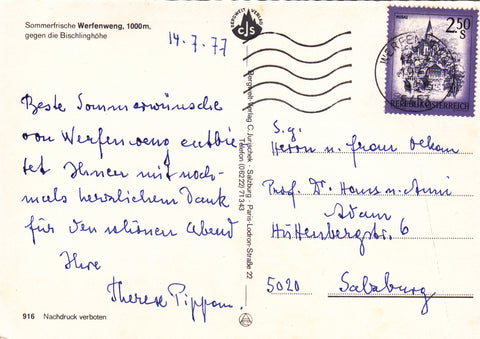 Sommerfrische Werfenweng, 1000m,
gegen die Bischlinghöhe
14.7.77
Beste Sommerwünsche
von Werfenweng entbie
tet Ihnen mit noch-
mals herzlichem Dank
für den schönen Abend
Ihre
Therese Pippan.
916 Nachdruck verboten
BERGWELT VERLAG
CJS
Bergwelt Verlag C. Jurischek · Salzburg · Paris-Lodron-Straße 22
Telefon (06222) 71343
MURAU
2.50
S
REPUBLIK ÖSTERREICH
S.g.
Herrn u. Frau Dekan
Prof. Dr. Hans u. Anni
Adam
Hüttenbergstr. 6
5020 Salzburg